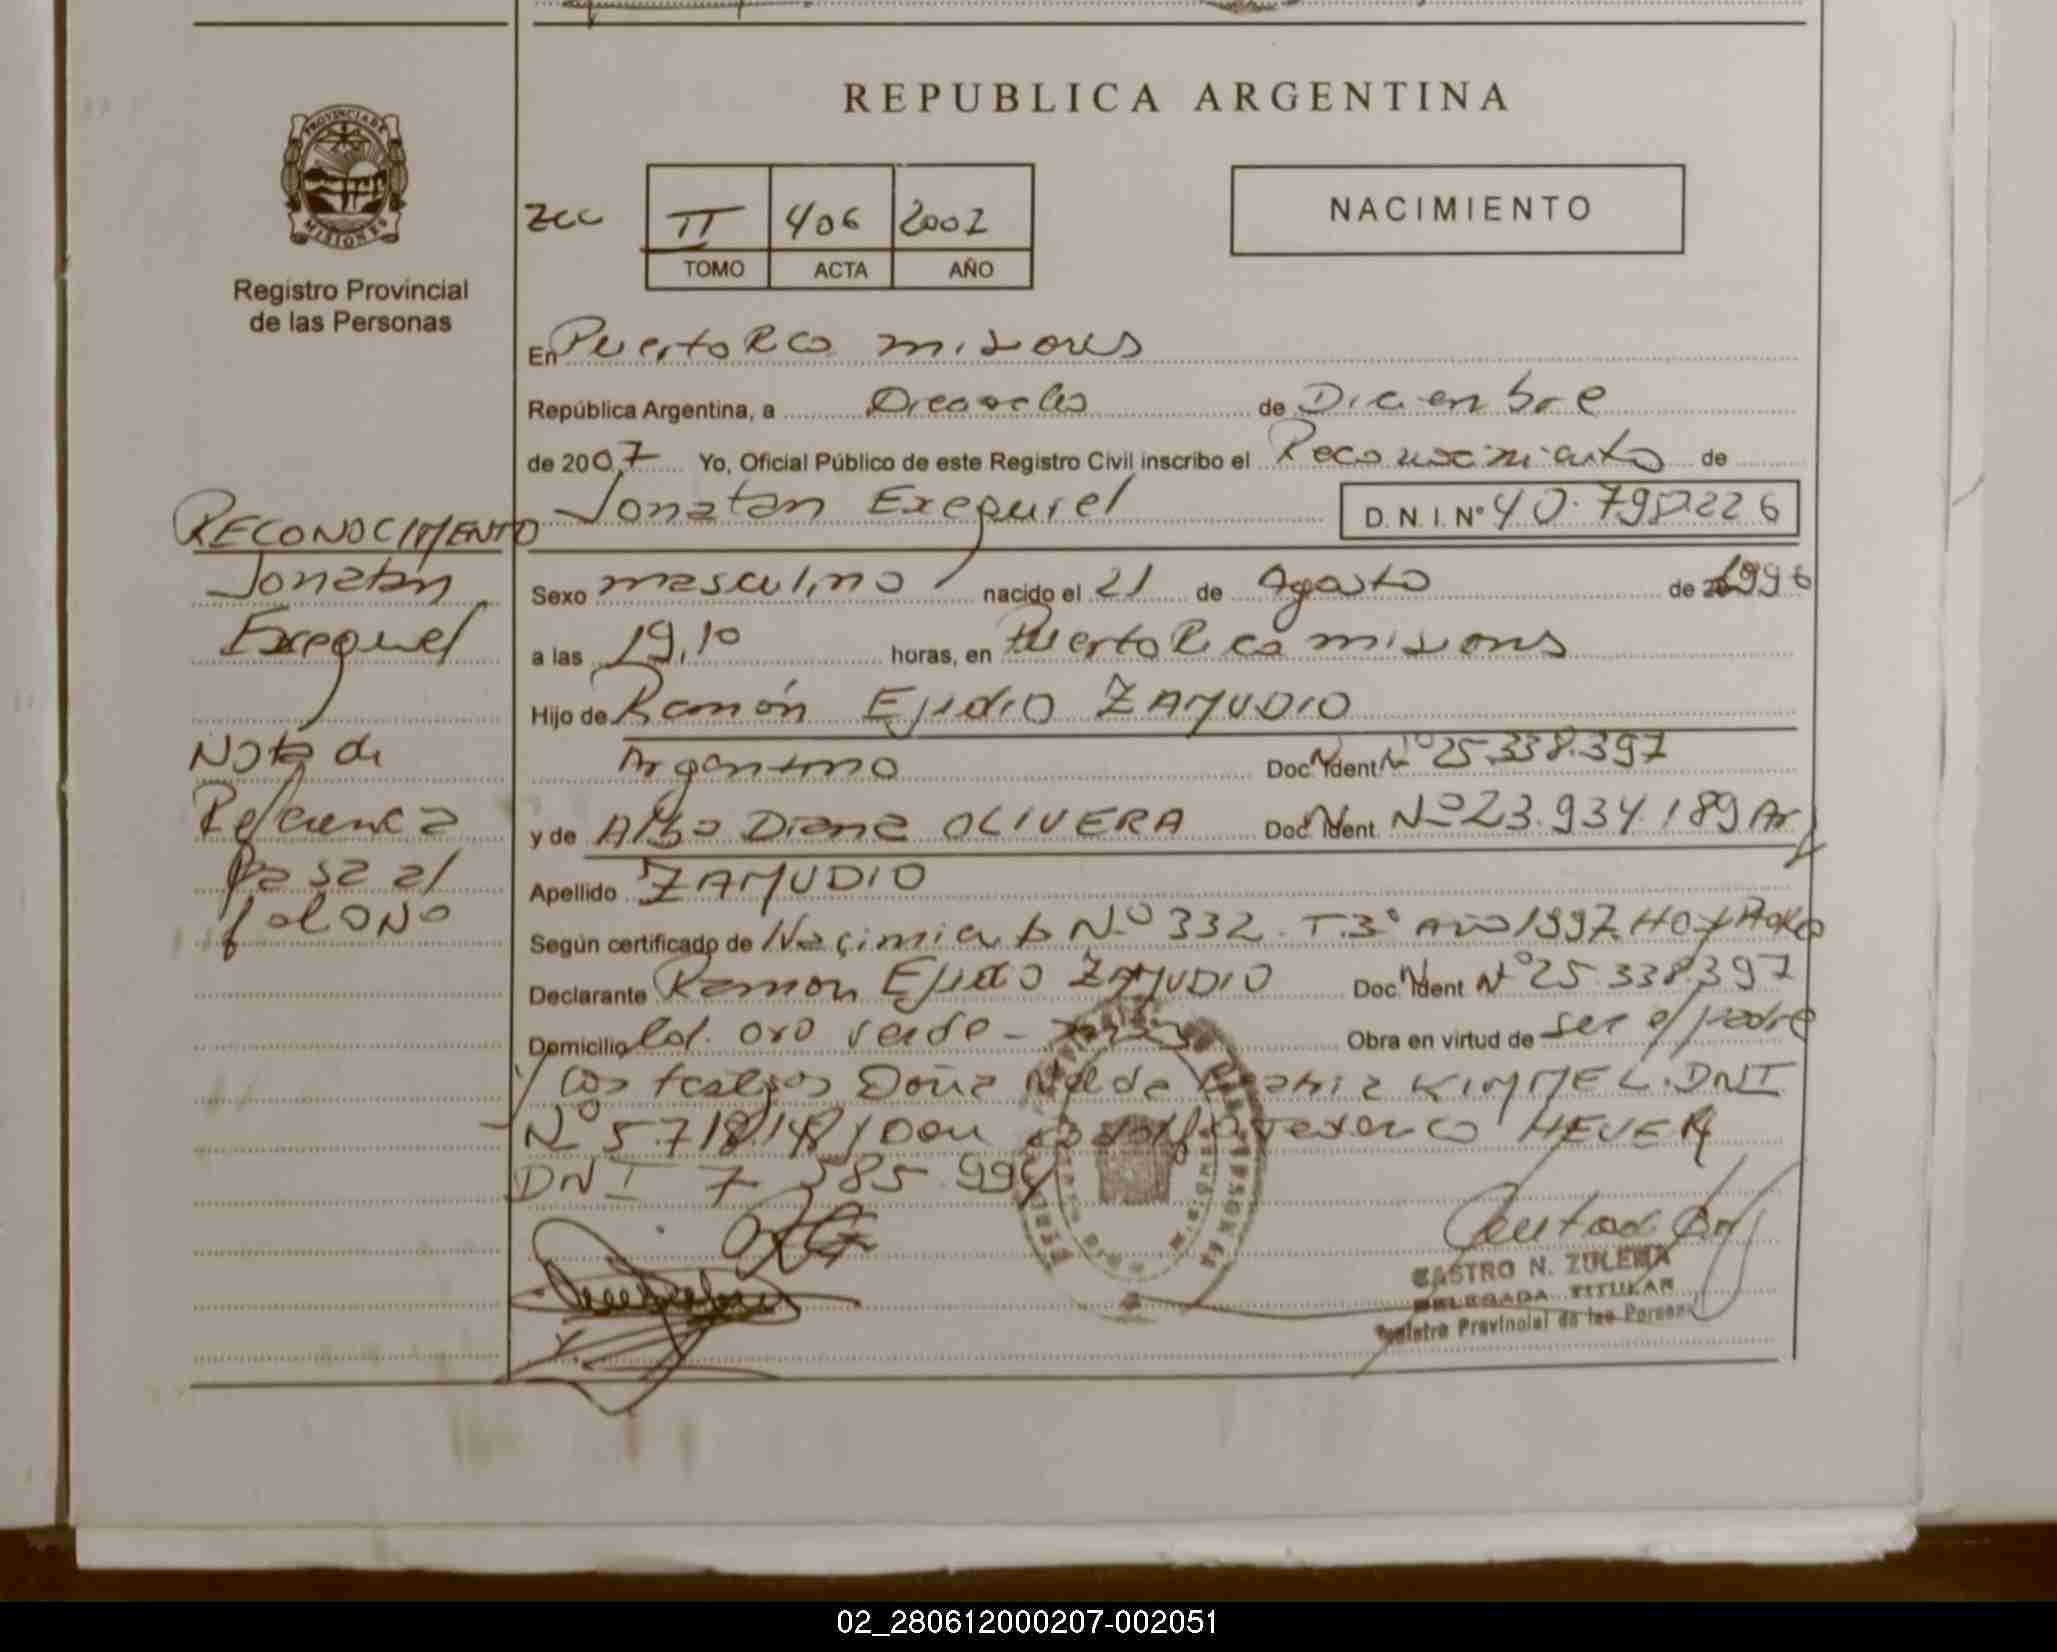 REPUBLICA ARGENTINA
PROVINCIA DE MISIONES
Registro Provincial
de las Personas
II 406 2007
TOMO ACTA AÑO
NACIMIENTO
En Puerto Rico misiones
República Argentina, a Dieciseis de Diciembre
de 2007 Yo, Oficial Público de este Registro Civil inscribo el Reconocimiento de
Jonatan Exequiel D.N.I. Nº 40.790.226
RECONOCIMIENTO
Jonatan
Exequiel
Nota de
Referencia
pasa al
folio Nº
Sexo masculino nacido el 21 de Agosto de 1996
a las 19,10 horas, en Puerto Rico misiones
Hijo de Ramón Ejidio ZAMUDIO
Argentino Doc. Ident. Nº 25.338.397
y de Alba Diana OLIVERA Doc. Ident. Nº 23.934.189 Ar
Apellido ZAMUDIO
Según certificado de Nacimiento Nº 332 T.3º Año 1997
Declarante Ramon Ejidio ZAMUDIO Doc. Ident Nº 25.338.397
Domicilio Col. oro verde - Obra en virtud de ser el padre
Los testigos Doña Nelda Beatriz KIMMEL. DNI
Nº 5.718.148 / Don Federico
DNI 7.585.994
CASTRO N. ZULEMA
DELEGADA TITULAR
Registro Provincial de las Personas
02_280612000207-002051